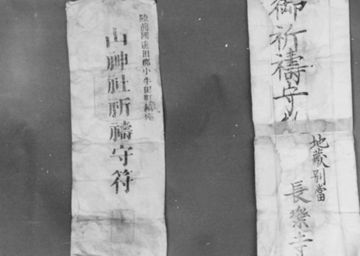 陸前國遠田郡小牛田町鎮座
山神社祈禱守符
御祈禱守
地藏別當
長樂寺